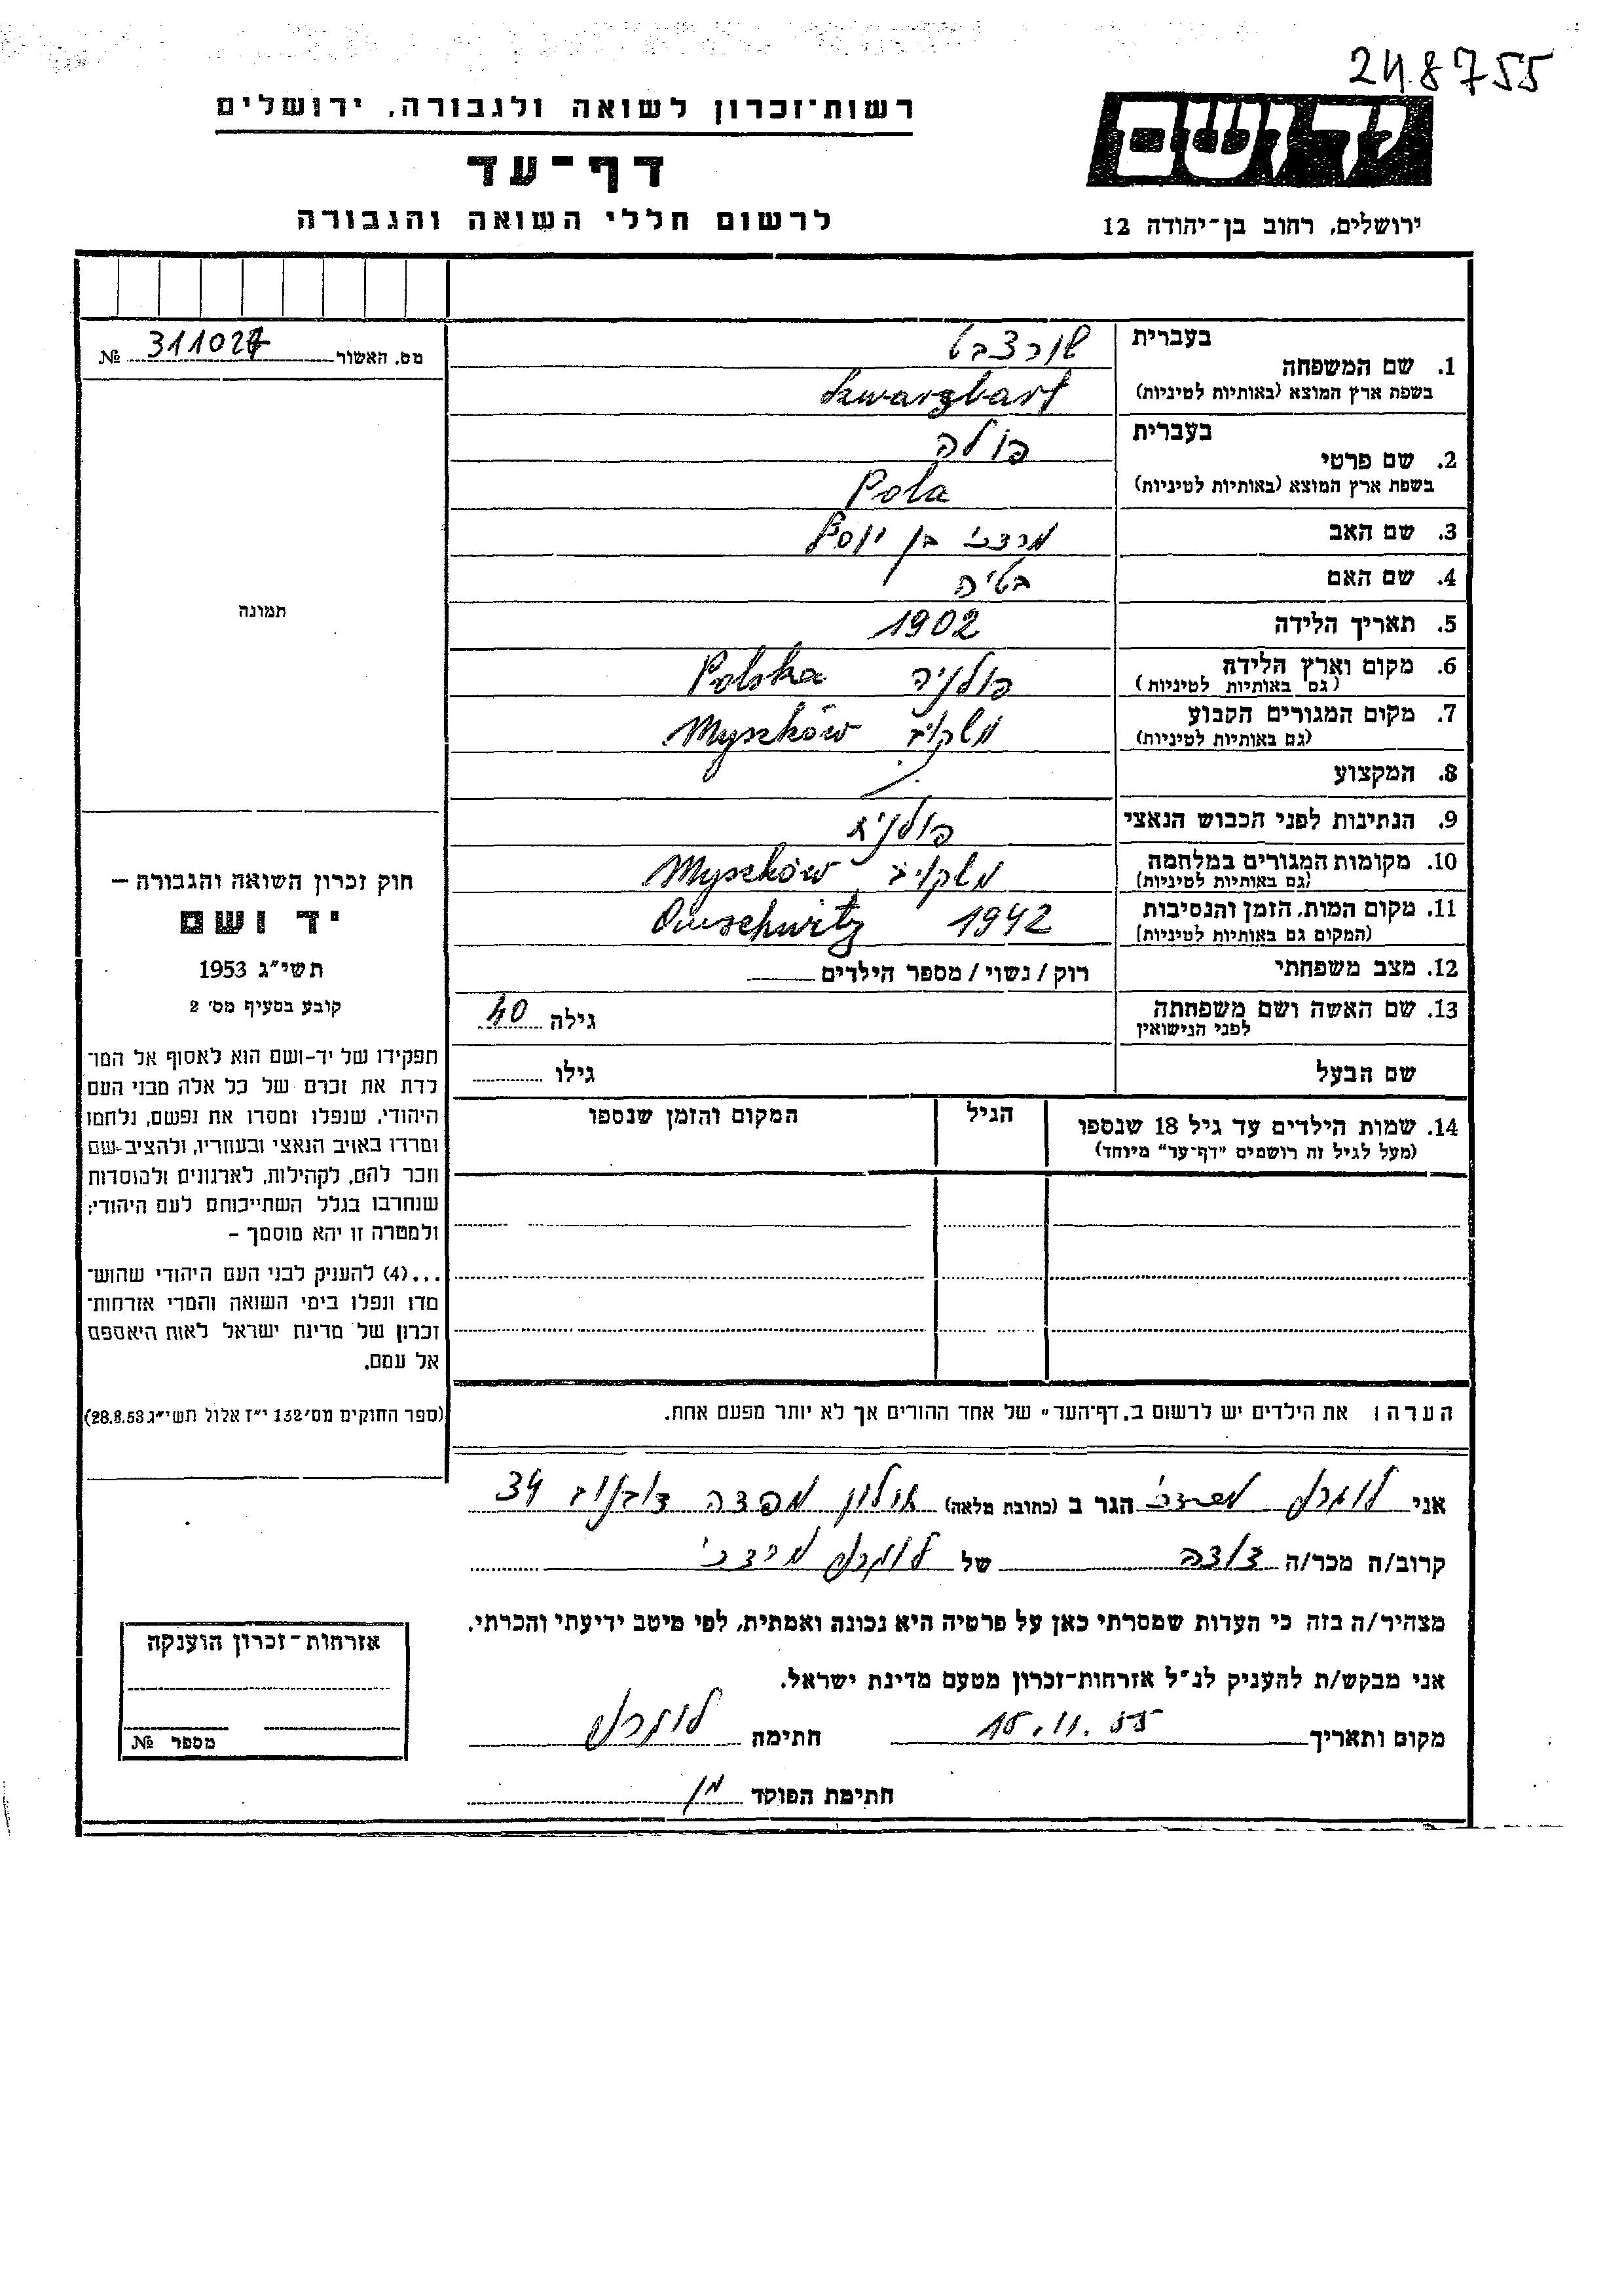 248755
יד ושם
רשות-זכרון לשואה ולגבורה, ירושלים
דף-עד
לרשום חללי השואה והגבורה
ירושלים, רחוב בן-יהודה 12
מס. האשור 311027 №
תמונה
1. שם המשפחה
בעברית שורצברט
בשפת ארץ המוצא (באותיות לטיניות) Szwarzbart
2. שם פרטי
בעברית פולה
בשפת ארץ המוצא (באותיות לטיניות) Pola
3. שם האב מרדכי בן יוסף
4. שם האם בטיה
5. תאריך הלידה 1902
6. מקום וארץ הלידה פולניה Polska
(גם באותיות לטיניות)
7. מקום המגורים הקבוע משקוב Myszków
(גם באותיות לטיניות)
8. המקצוע
9. הנתינות לפני הכבוש הנאצי פולנית
10. מקומות המגורים במלחמה משקוב Myszków
(גם באותיות לטיניות)
11. מקום המות, הזמן והנסיבות 1942 Ouschwitz
(המקום גם באותיות לטיניות)
12. מצב משפחתי רוק / נשוי / מספר הילדים
13. שם האשה ושם משפחתה גילה 40
לפני הנישואין
שם הבעל גילו
14. שמות הילדים עד גיל 18 שנספו הגיל המקום והזמן שנספו
(מעל לגיל זה רושמים "דף-עד" מיוחד)
חוק זכרון השואה והגבורה –
יד ושם
תשי"ג 1953
קובע בסעיף מס' 2
תפקידו של יד-ושם הוא לאסוף אל המו-
לדת את זכרם של כל אלה מבני העם
היהודי, שנפלו ומסרו את נפשם, נלחמו
ומרדו באויב הנאצי ובעוזריו, ולהציב-שם
וזכר להם, לקהילות, לארגונים ולמוסדות
שנחרבו בגלל השתייכותם לעם היהודי;
ולמטרה זו יהא מוסמך –
...(4) להעניק לבני העם היהודי שהוש-
מדו ונפלו בימי השואה והמרי אזרחות-
זכרון של מדינת ישראל לאות היאספם
אל עמם.
(ספר החוקים מס' 132 י"ז אלול תשי"ג 28.8.53)
הערה: את הילדים יש לרשום ב„דף-העד" של אחד ההורים אך לא יותר מפעם אחת.
אני הגר ב (כתובת מלאה) 34
קרוב/ה מכר/ה דודה של מרדכי
מצהיר/ה בזה כי העדות שמסרתי כאן על פרטיה היא נכונה ואמתית, לפי מיטב ידיעתי והכרתי.
אני מבקש/ת להעניק לנ"ל אזרחות-זכרון מטעם מדינת ישראל.
מקום ותאריך 15.11.55 חתימה
חתימת הפוקד
אזרחות-זכרון הוענקה
מספר №